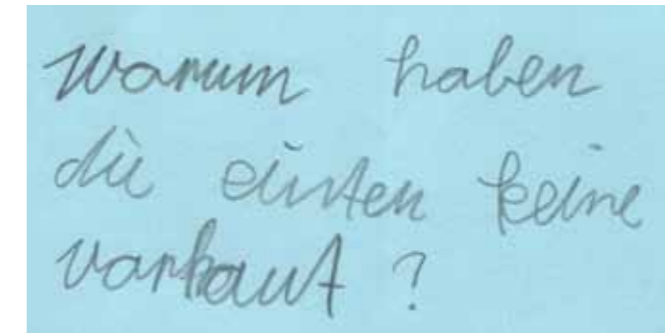 Warum haben
die einten keine
vorhaut ?